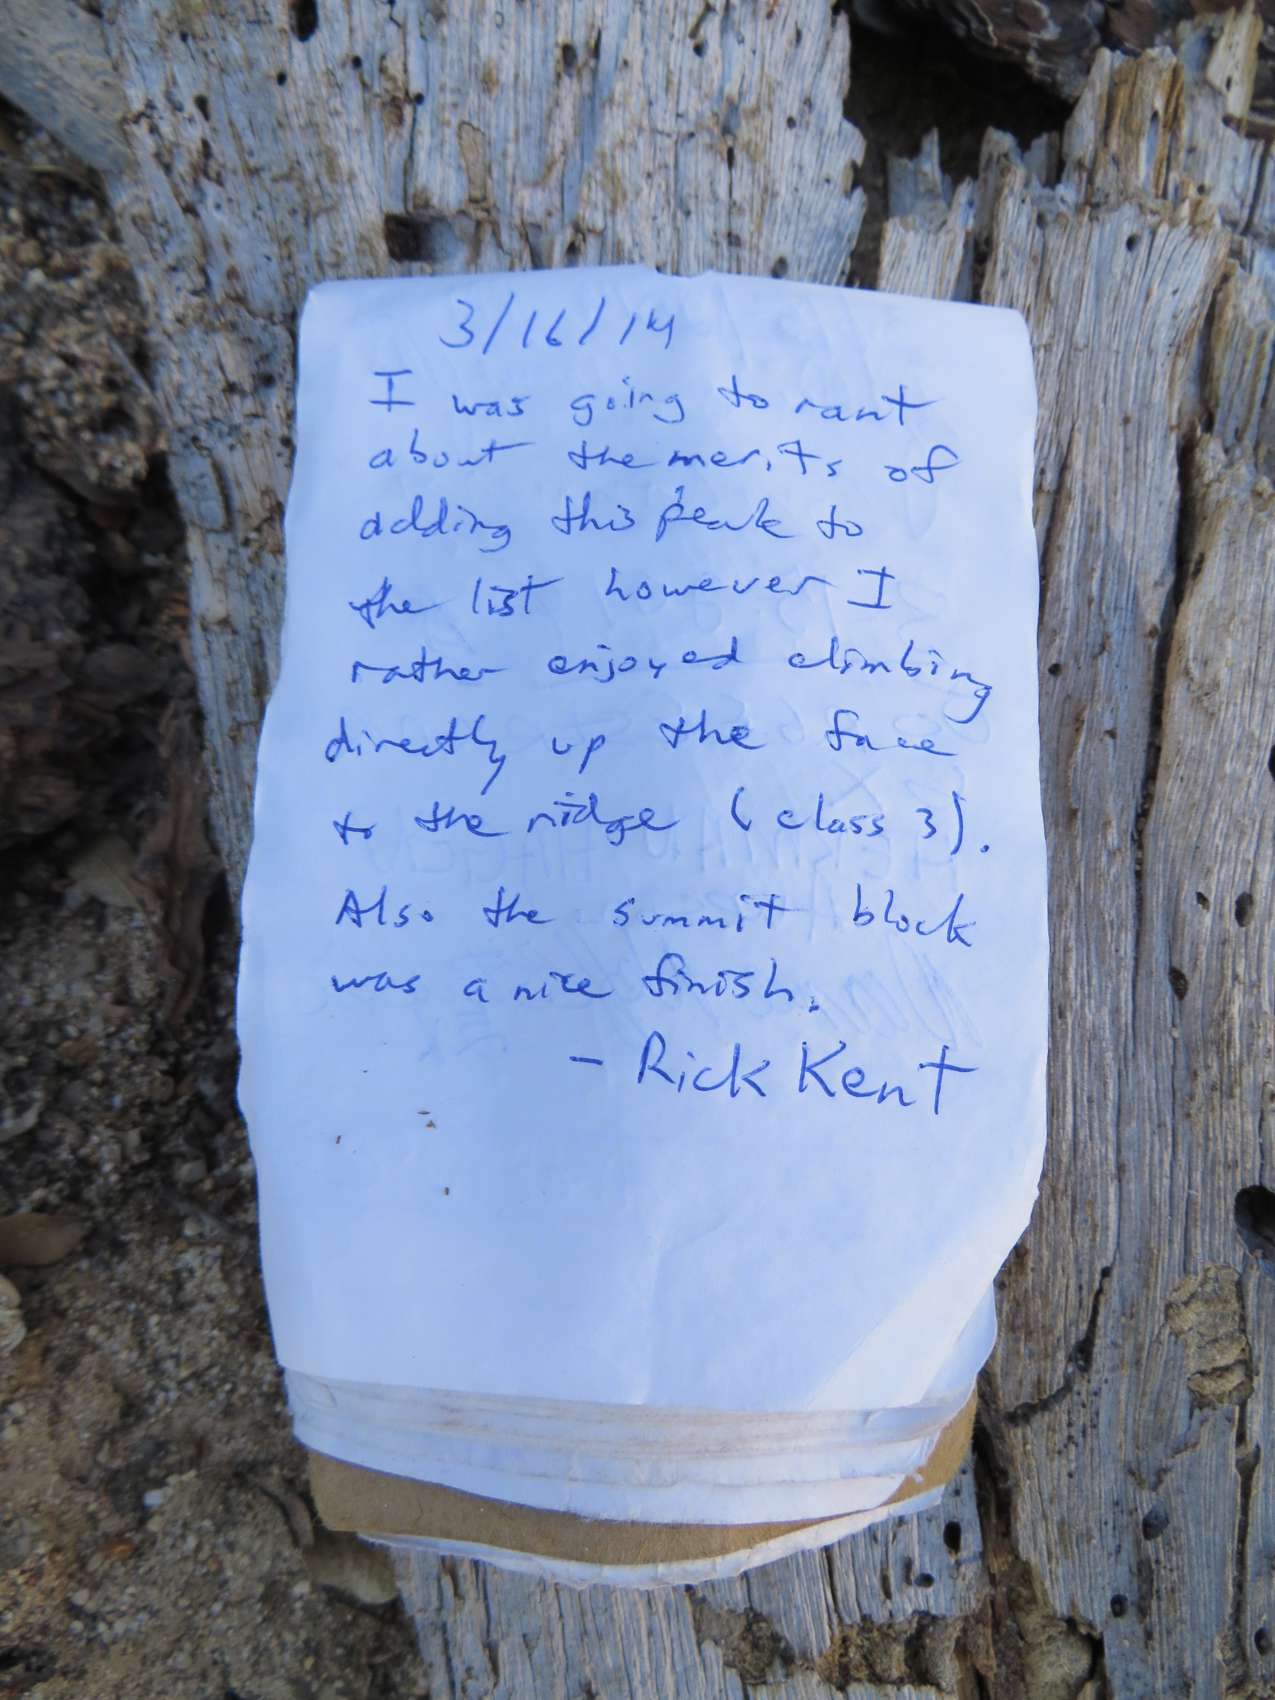 3/16/14
I was going to rant
about the merits of
adding this peak to
the list however I
rather enjoyed climbing
directly up the face
to the ridge (class 3).
Also the summit block
was a nice finish.
- Rick Kent